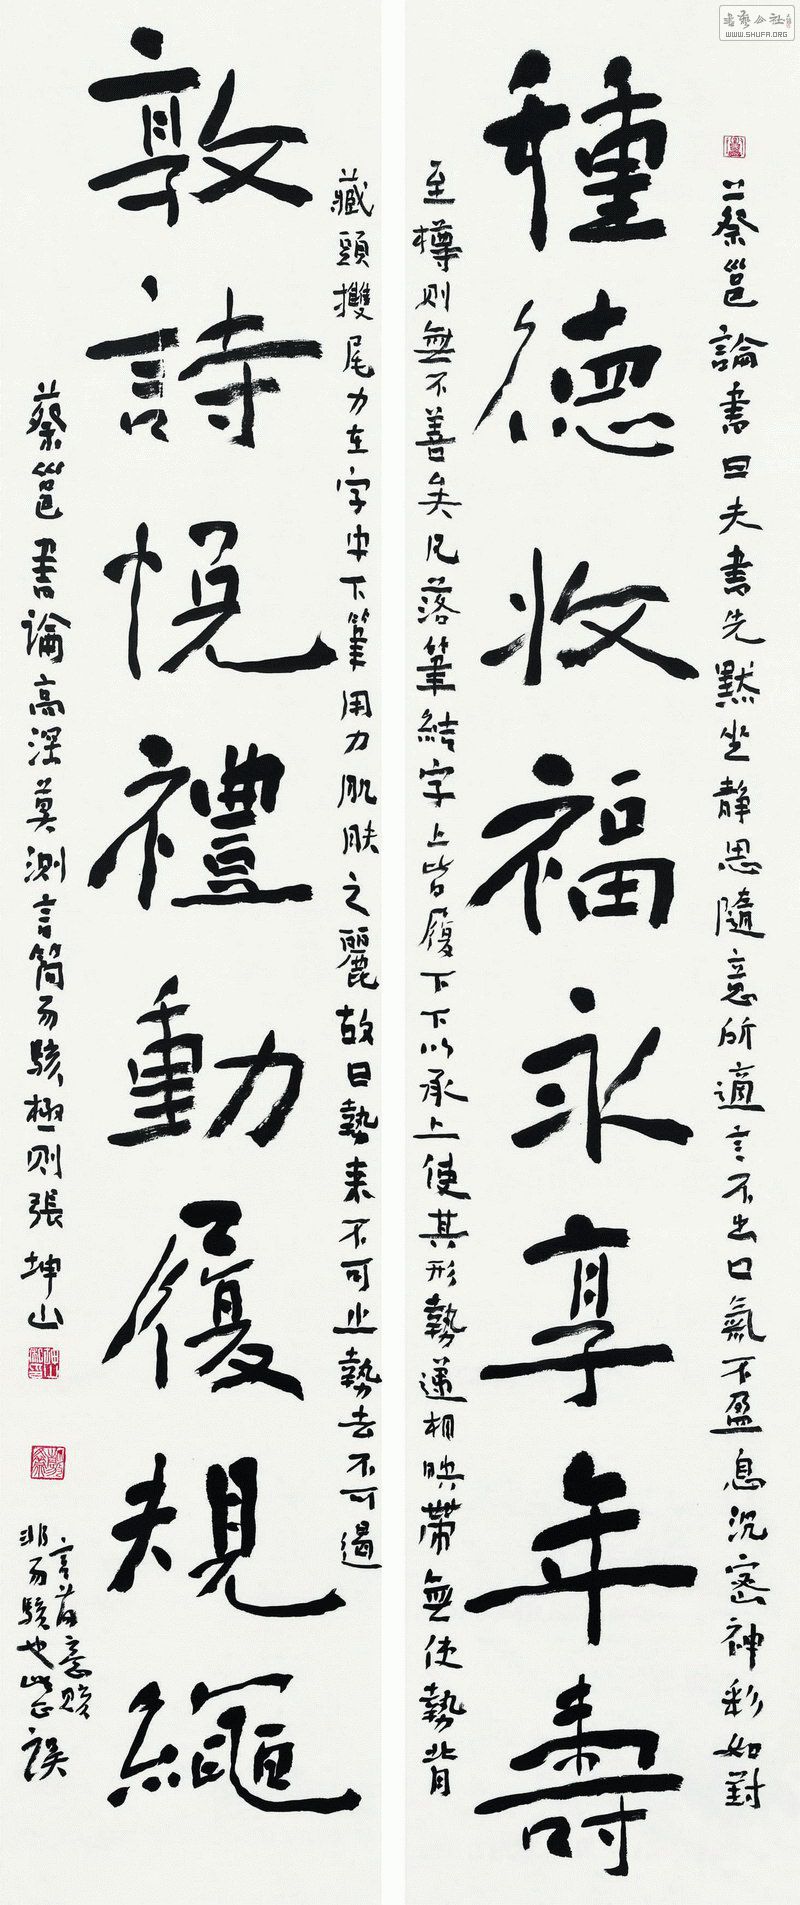 蔡邕論書曰夫書先默坐静思隨意所適言不出口氣不盈息沉密神彩如對
種德收福永享年壽
至樽則無不善矣凡落筆結字上皆履下下以承上使其形勢遞相映帶無使勢背
藏頭尾力在字中下筆用力肌膚之麗故曰勢來不可止勢去不可遏
敦詩悅禮動履規繩
蔡邕書論高深莫測言簡易駭極則張坤山
言簡意賅
非易駭也此正誤
WWW.SHUFA.ORG